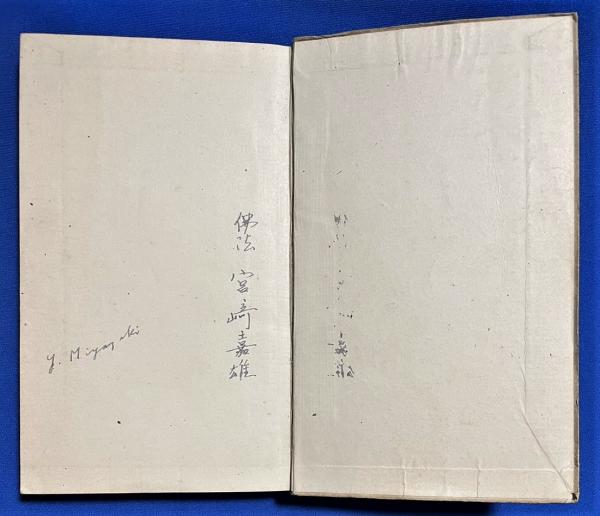 佛法 宮崎嘉雄
Y. Miyazaki